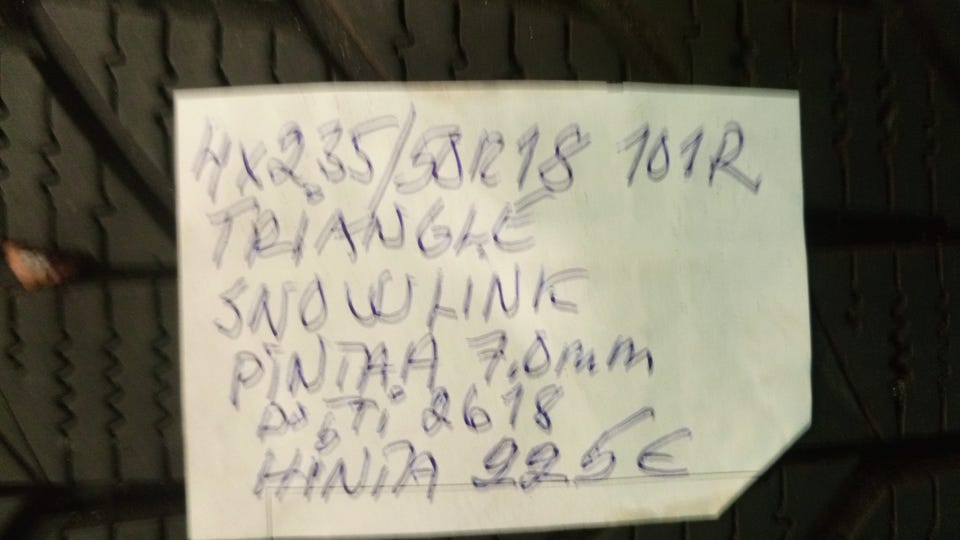 4X235/50R18 101R
TRIANGLE
SNOWLINK
PINTAA 7.0mm
2618
HINTA 225€